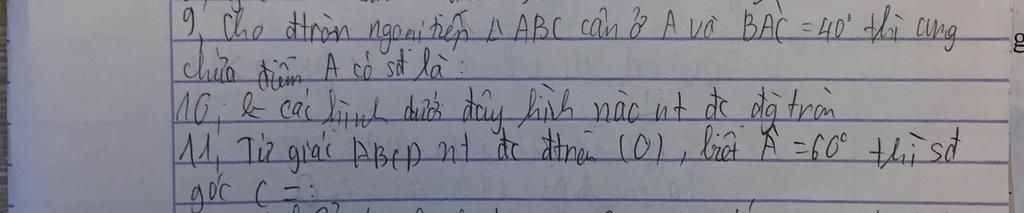 9, Cho đtròn ngoại tiếp Δ ABC cân ở A và BAC = 40° thì cung
chứa điểm A có sđ là :
10, các hình dưới đây hình nào nt đc đg tròn
11, Tứ giác ABCD nt đc đtròn (O), biết Â = 60° thì sđ
góc C = :